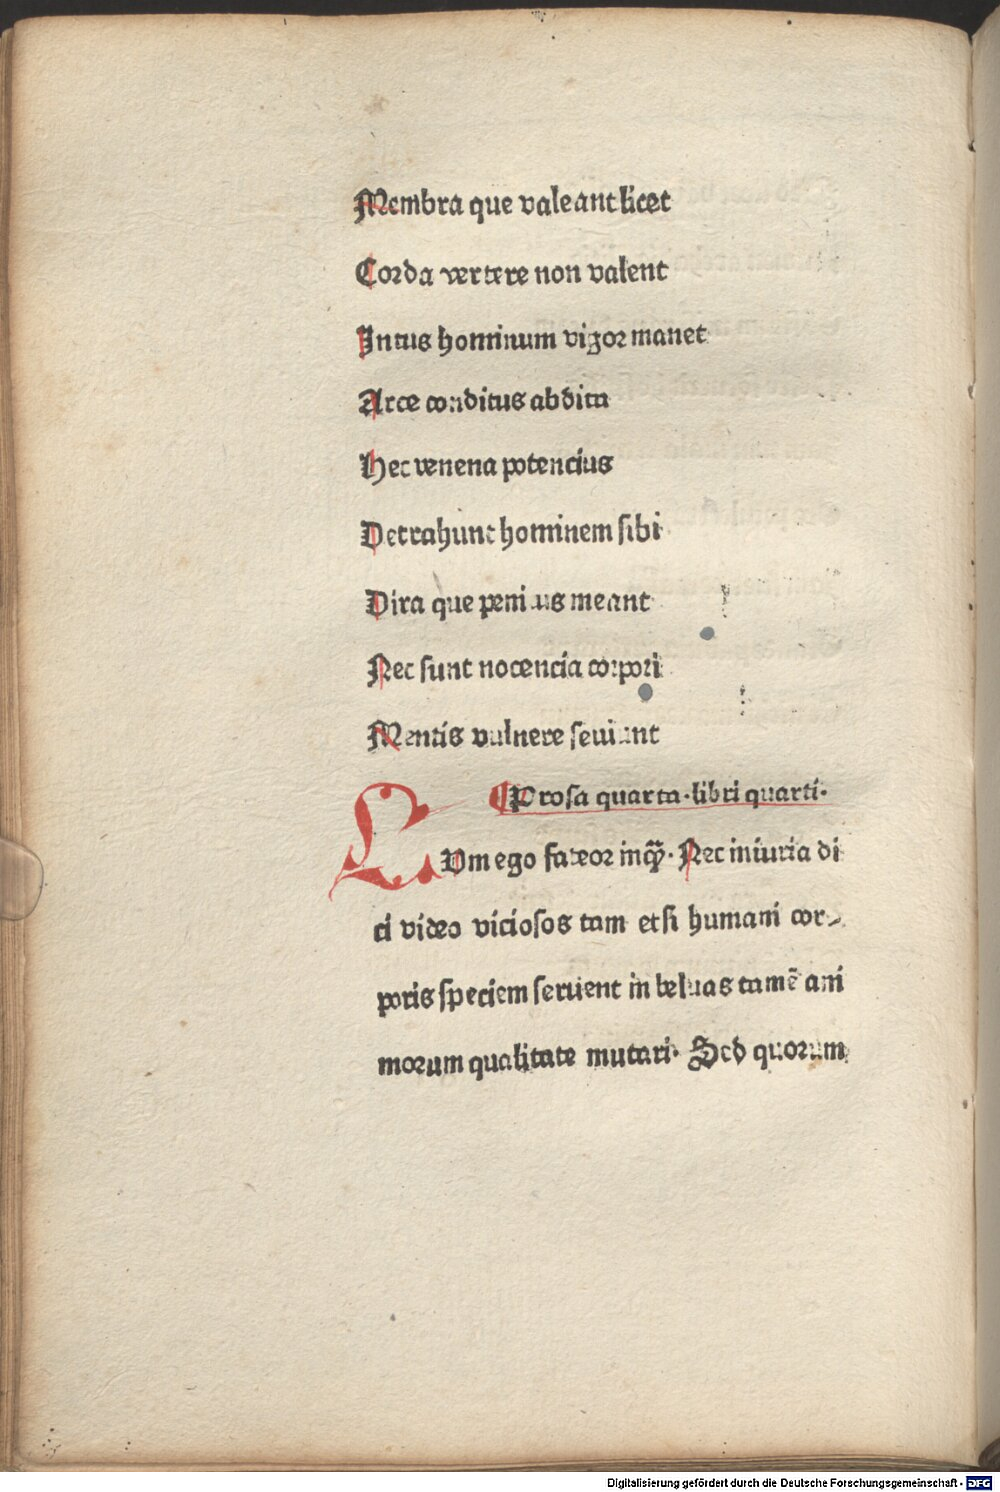 Membra que valeant licet
Corda vertere non valent
Intus hominum vigor manet
Arce conditus abdita
Hec venena potencius
Detrahunt hominem sibi
Dira que penitus meant
Nec sunt nocencia corpori
Mentis vulnere seuiunt
¶Prosa quarta·libri quarti·
TVm ego fateor inqͣ· Nec iniuria di
ci video viciosos tam etsi humani cor-
poris speciem seruent in beluas tamē ani
morum qualitate mutari· Sed quorum
Digitalisierung gefördert durch die Deutsche Forschungsgemeinschaft · DFG